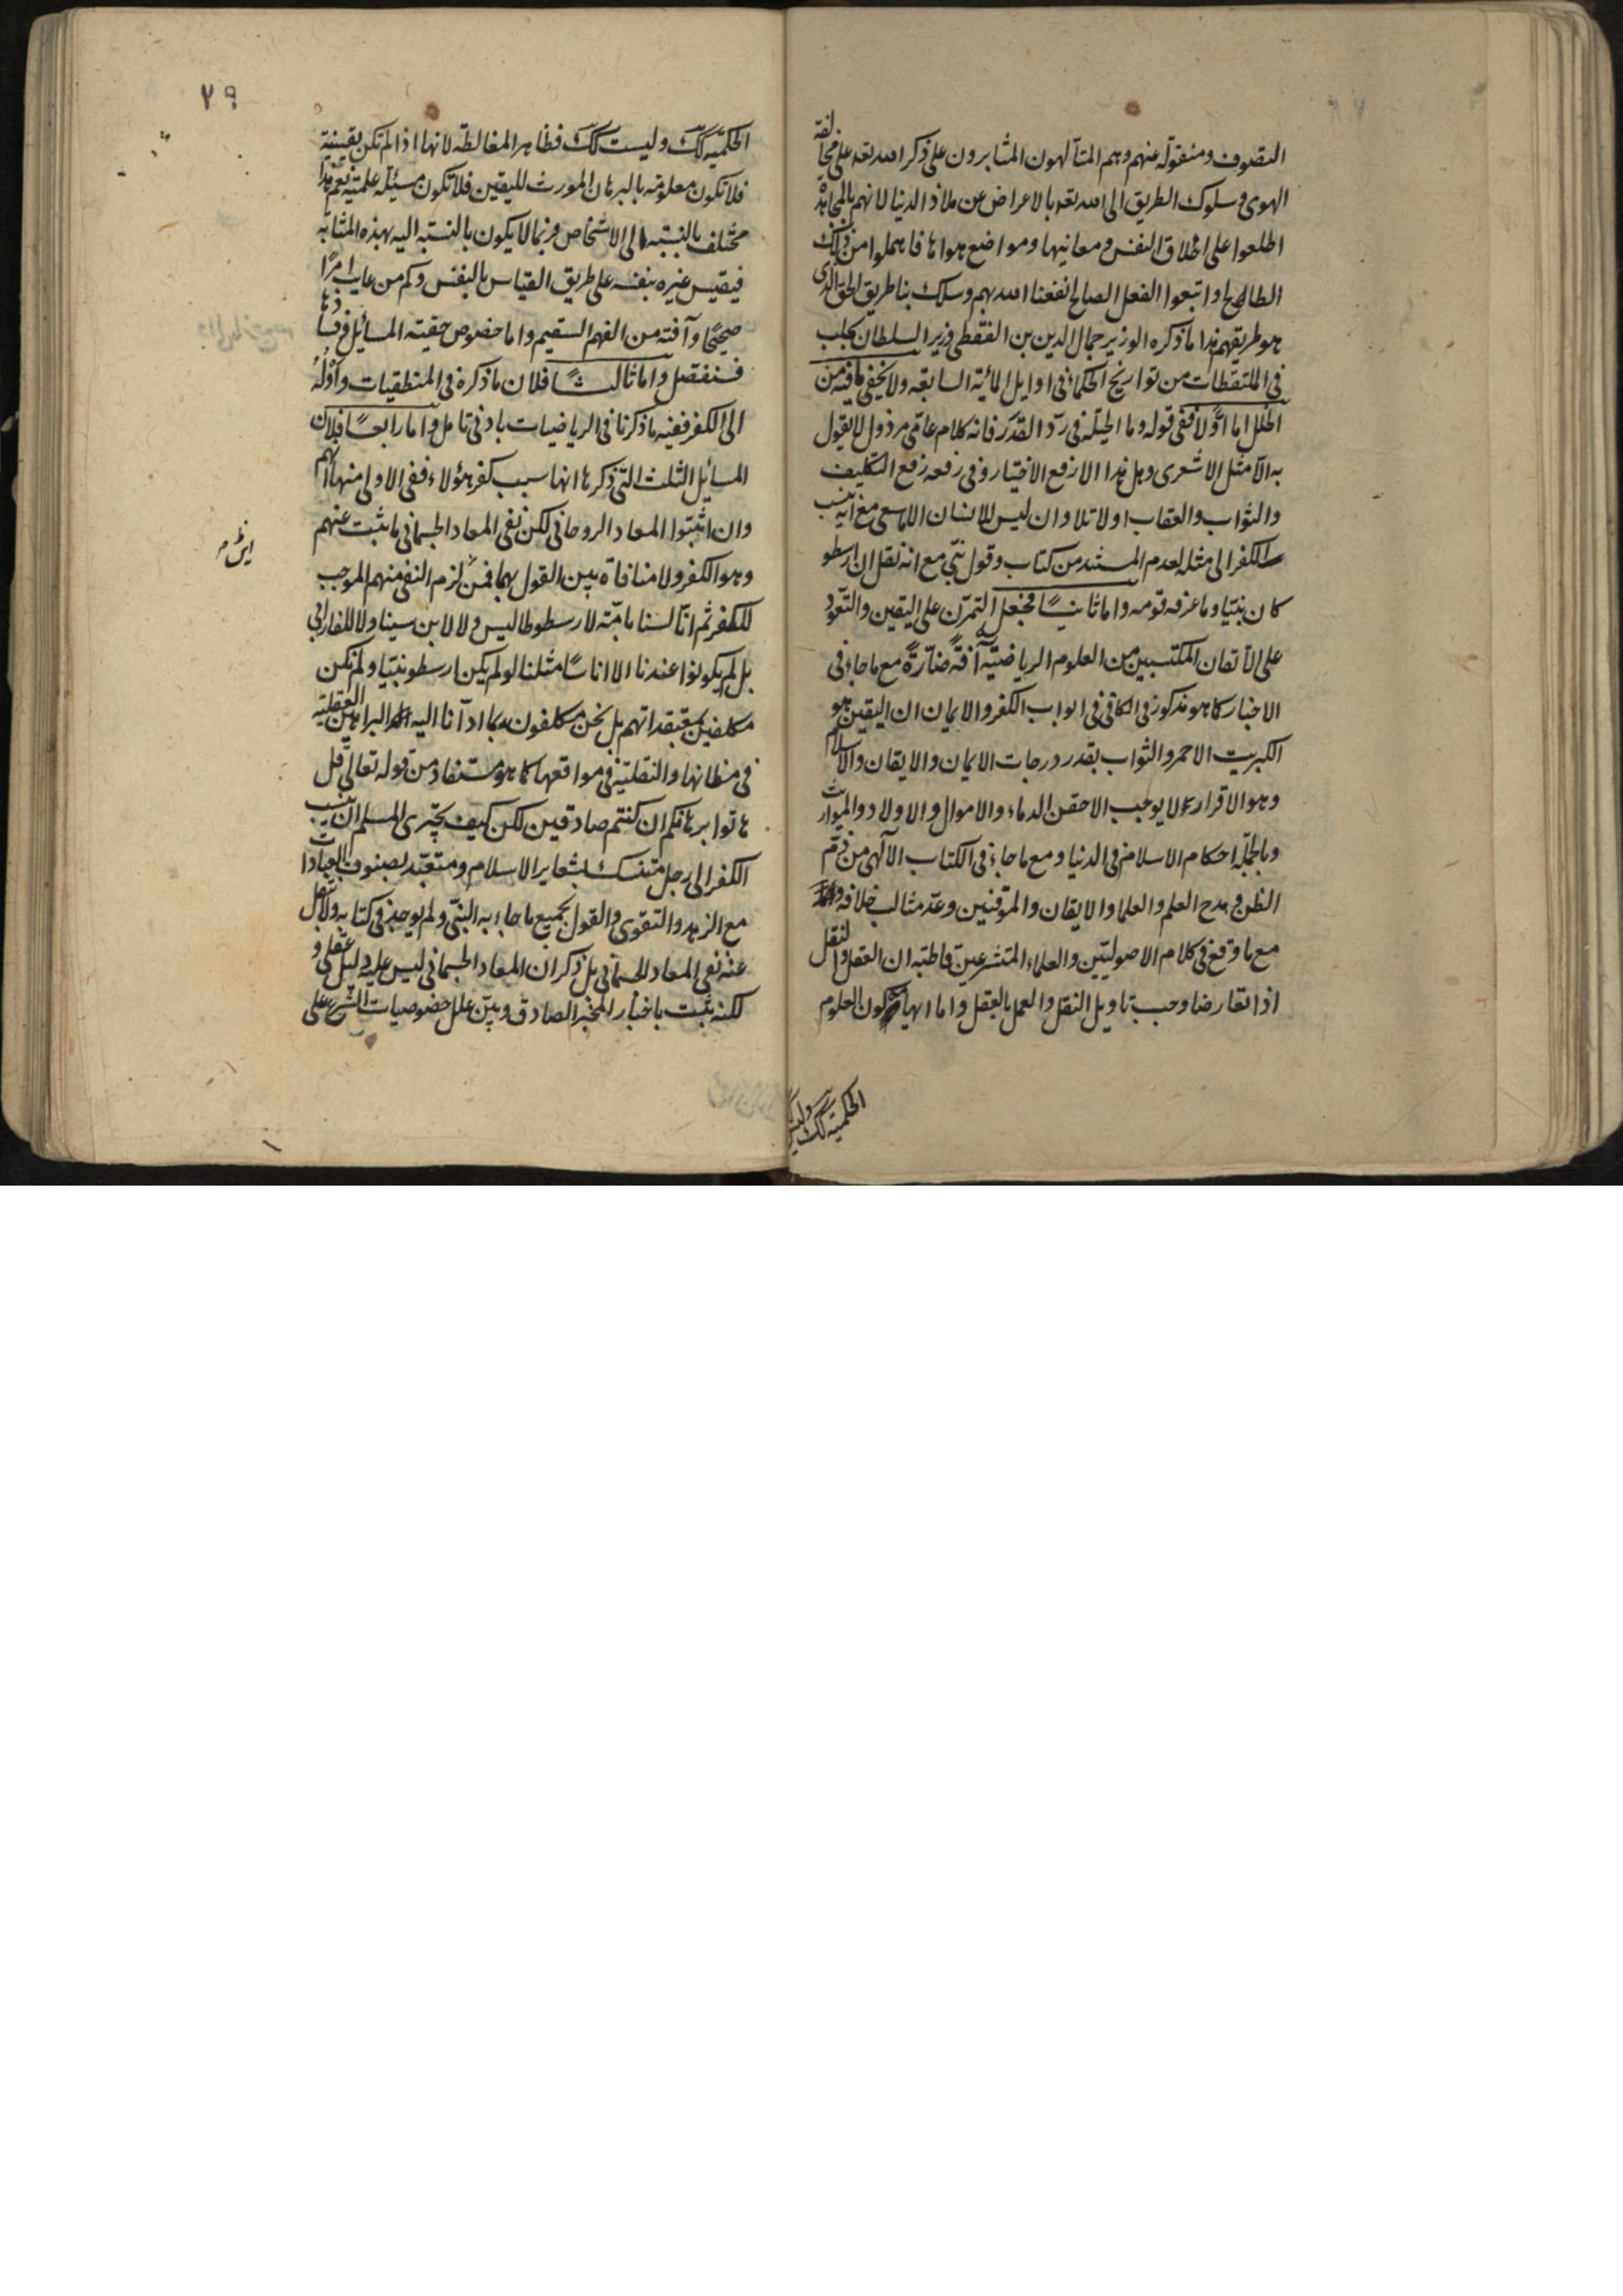 التصوف ومنقولة عنهم وهم المتألهون المثابرون على ذكر الله تعه على مخالفة
الهوى وسلوك الطريق الى الله تعه بالاعراض عن ملاذ الدنيا لانهم بالمجاهدة
اطلعوا على اخلاق النفس ومعانيها ومواضع هواها فاهملوا من ذلك
الطالح واتبعوا الفعل الصالح انفعنا الله بهم وسلك بنا طريق الحق الذى
هو طريقهم هذا ما ذكره الوزير جمال الدين بن القفطى وزير السلطان بحلب
فى الملتقطات من تواريخ الحكماء فى اوايل المائية السابعة ولا يخفى ما فيه من
الخلل اما اولا ففى قوله وما الحيلة فى ردّ القدر فانه كلام عامى مرذول لا يقول
به الا مثل الاشعرى وهل هذا الا رفع الاختيار وفى رفعه رفع التكليف
والثواب والعقاب اولا تلا وان ليس للانسان الا ما سعى مع انه ينسب
الكفر الى مثله لعدم المستند من كتاب وقول نبى مع انه نقل ان ارسطو
كان نبيّا وما عرفه قومه واما ثانيًا فجعل التمرّن على اليقين والتعود
على الاتقان المكتسبين من العلوم الرياضيّة آفةً ضارّةً مع ما جاء فى
الاخبار كما هو مذكور فى الكافى فى ابواب الكفر والايمان ان اليقين هو
الكبريت الاحمر والثواب بقدر درجات الايمان والايقان والاسلام
وهو الاقرار لا يوجب الا حقن الدماء والاموال والاولاد والمواريث
وبالجملة احكام الاسلام فى الدنيا ومع ما جاء فى الكتاب الالهى من ذم
الظن ومدح العلم والعلما والايقان والموقنين وعدّ مثالب خلافه
مع ما وقع فى كلام الاصوليين والعلماء المتشرعين قاطبة ان العقل والنقل
اذا تعارضا وجب تاويل النقل والعمل بالعقل واما ايهام كون العلوم
الحكمية كك وليس
٧٩
الحكميّة كك وليست كك فظاهر المغالطة لانها اذا لم تكن يقينية
فلا تكون معلومة بالبرهان المورث لليقين فلا تكون مسئلة علمية نعم هذا
مختلف بالنسبة الى الاشخاص فربما لا يكون بالنسبة اليه بهذه المثابة
فيقيس غيره بنفسه على طريق القياس بالنفس وكم من عايب امرًا
صحيحًا وآفته من الفهم السقيم واما خصوص حقية المسائيل وفسادها
فسنفصل واما ثالثًا فلان ما ذكره فى المنطقيات واوله
الى الكفر ففيه ما ذكرنا فى الرياضيات بادنى تامل واما رابعًا فلان
المسائيل الثلث التى ذكرها انها سبب كفر هؤلاء ففى الاولى منها انهم
وان اثبتوا المعاد الروحانى لكن نفى المعاد الجسمانى ما ثبت عنهم
ايض م
وهو الكفر ولا منافاة بين القول بهما فمن لزم النفى منهم الموجب
للكفر ثم انّا لسنا بامّة لارسطوطاليس ولا لابن سينا ولا للفارابى
بل لم يكونوا عندنا الا اناسًا مثلنا لو لم يكن ارسطو نبيّا ولم نكن
مكلفين بمعتقداتهم بل نحن مكلفون بما ادآنا اليه البراهين العقلية
فى مظانها والنقلية فى مواقعها كما هو مستفاد من قوله تعالى قل
هاتوا برهانكم ان كنتم صادقين لكن كيف يجترى المسلم ان ينسب
الكفر الى رجل متنسك بشعاير الاسلام ومتعبّد بصنوف العبادات
مع الزهد والتقوى والقول بجميع ما جاء به النبى ولم يوجد فى كتابه ولا نقل
عنه نفى المعاد الجسمانى بل ذكر ان المعاد الجسمانى ليس عليه دليل عقلى و
لكنه ثبت باخبار المخبر الصادق وبيّن علل خصوصيات الشرع على